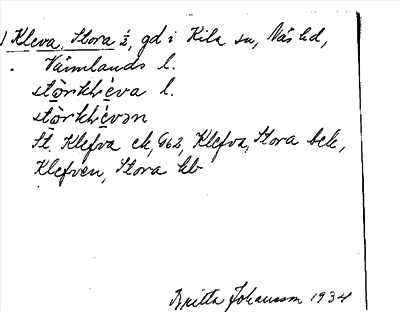 Kleva, Stora ½, gd i Kila sn, Näs hd,
Värmlands l.
stòrkhléva l.
stòrkhlévən
St. Klefva ek, G62, Klefva, Stora bek,
Klefven, Stora hb
Britta Johansson 1934